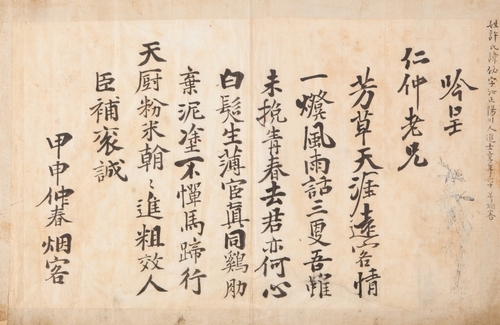 姓許氏諱佖字汝正陽川人進士
吟呈
仁仲老兄
芳草天涯遠客情
一燈風雨話三更吾雖
未挽青春去君亦何心
白髮生薄宦眞同鷄肋
棄泥塗不憚馬蹄行
天厨粉米翰〻進粗效人
臣補袞誠
甲申仲春烟客